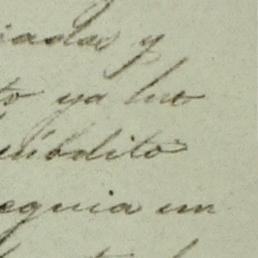 iadas y
to ya luo
súbdito
eguia un